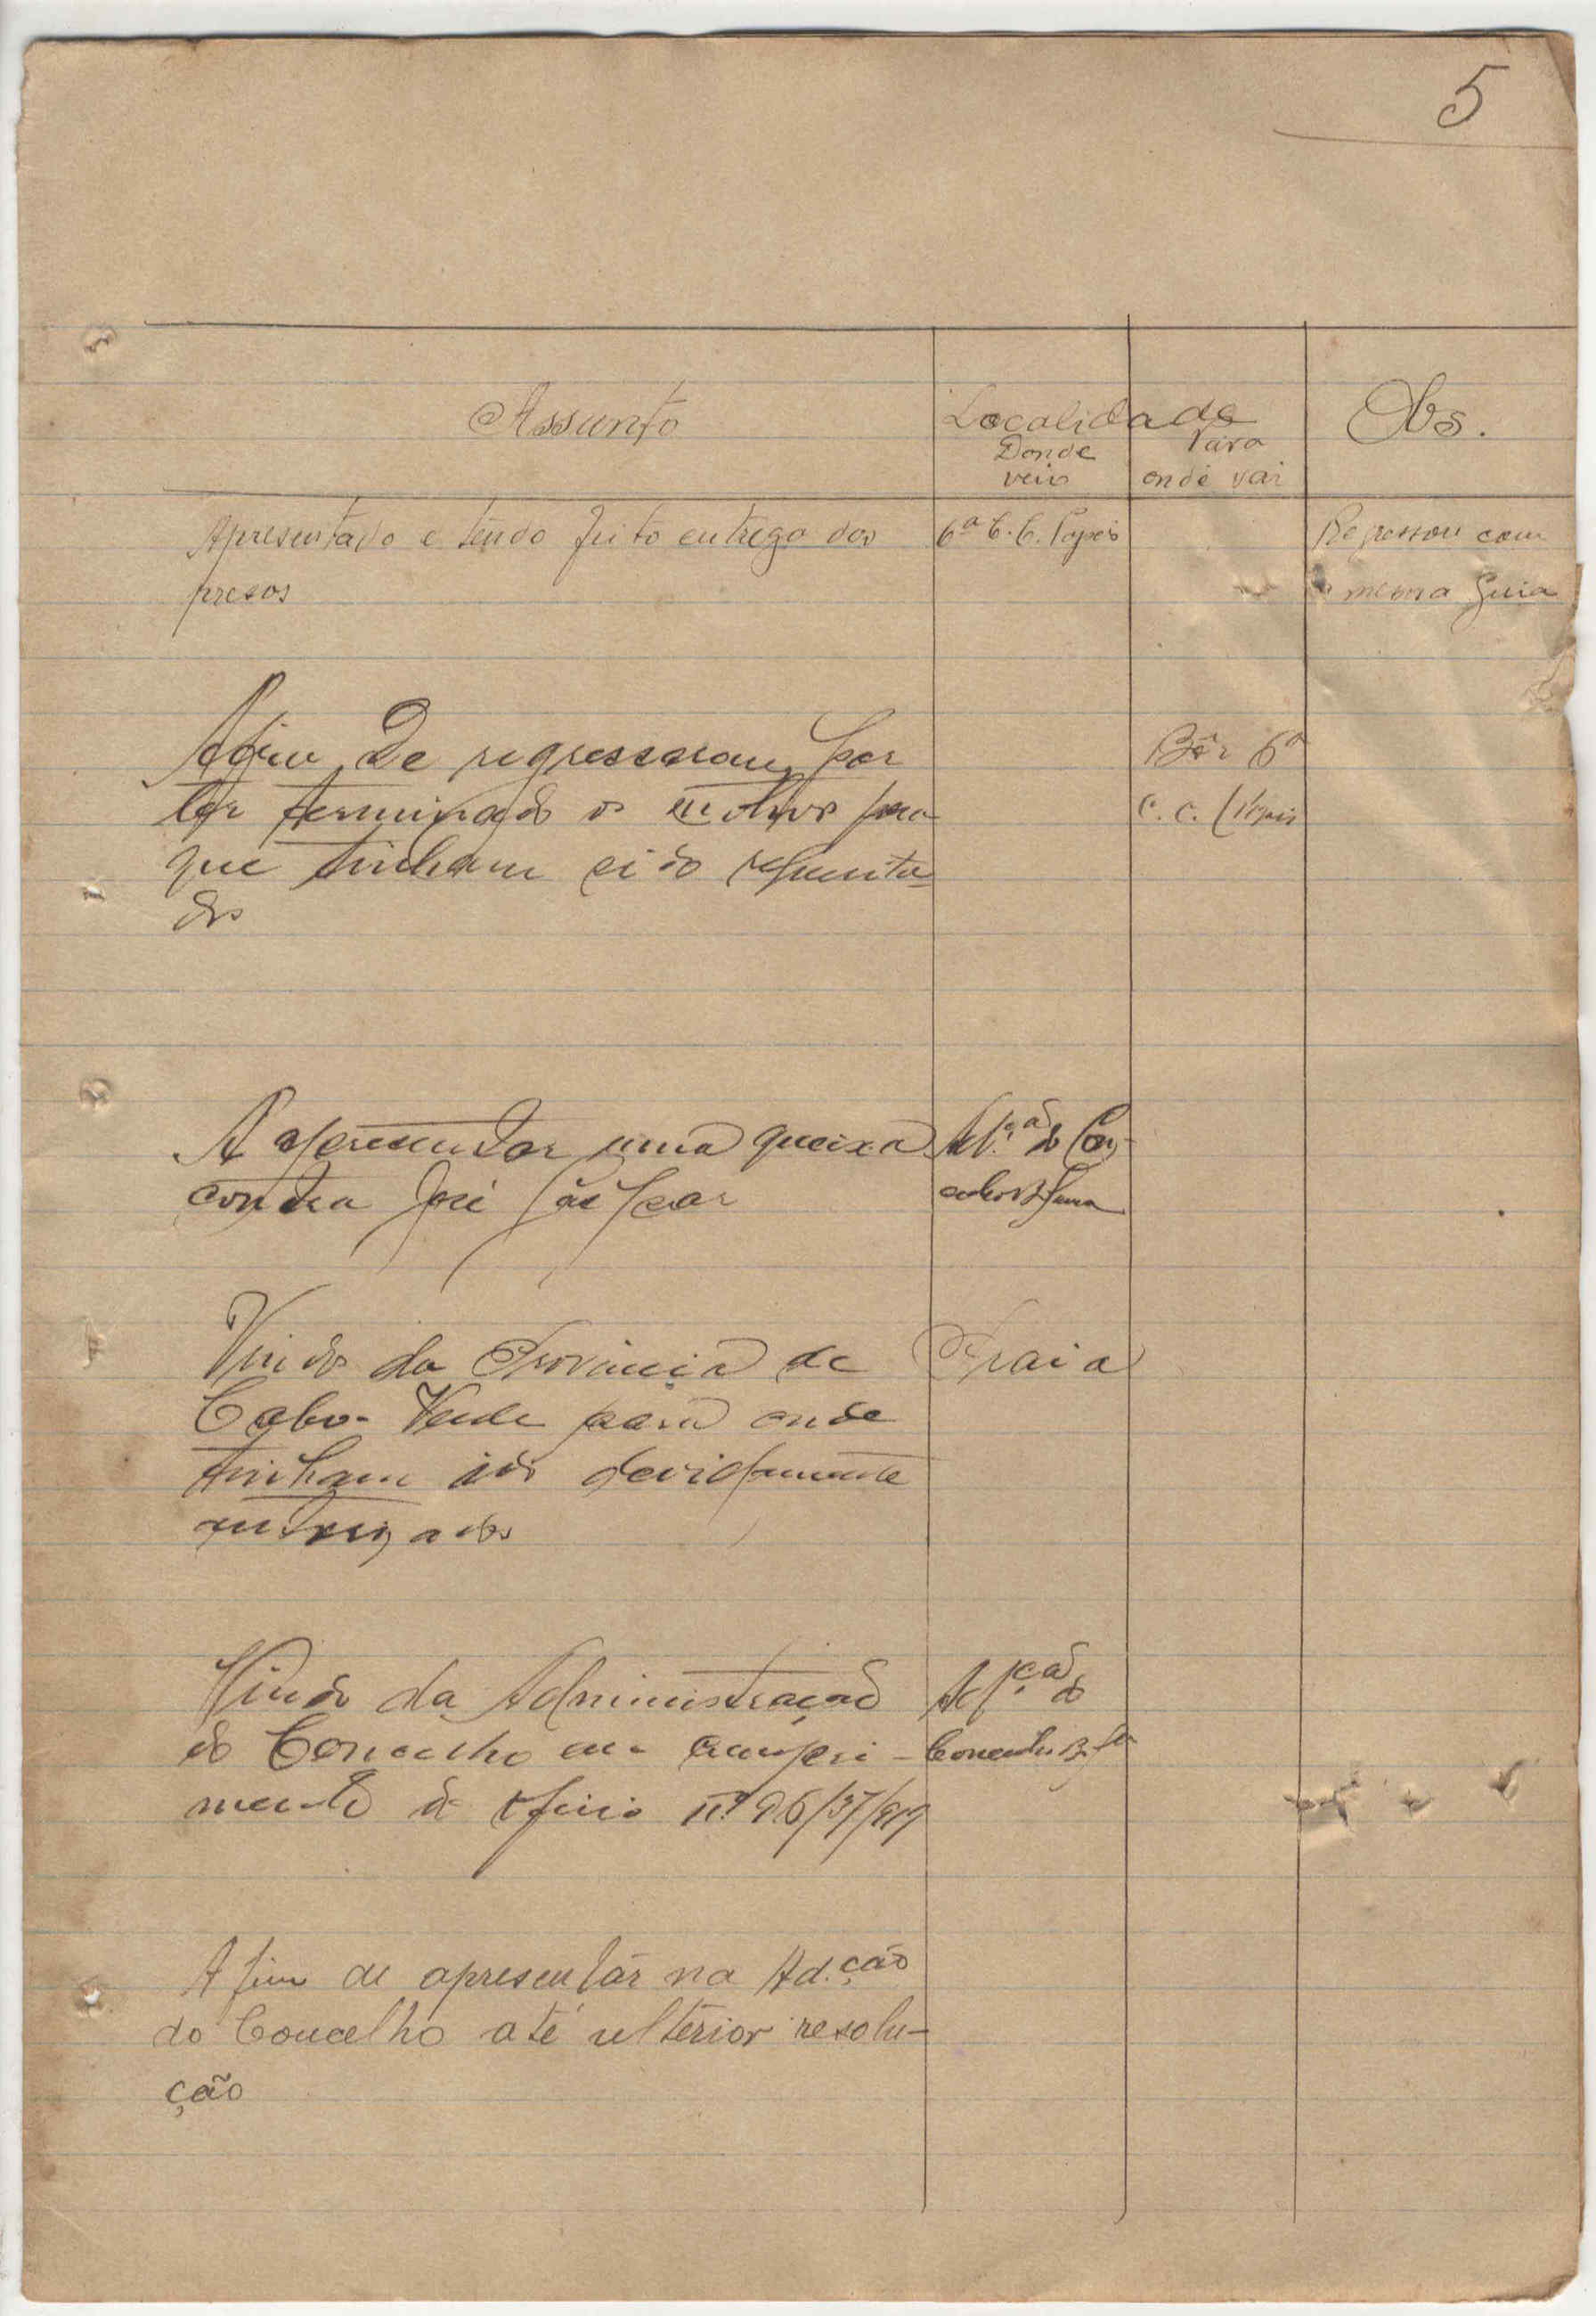 5
Assunto
Localidade
Obs.
Donde
veio
Para
onde vai
Apresentado e tendo feito entrega dos
presos
6ª C. C. Papeis
Regressou com
a mesma Guia
Afim de regressarem por
ter terminado o motivo para
que tinham sido requisita-
dos
Bôr 6ª
C. C. (Papeis
A apresentar uma queixa
contra José Gaspar
Ad.ção do Con-
celho Bissau
Vindos da Provincia de
Cabo-Verde para onde
tinham ido devidamente
autorizados
Praia
Vindo da Administração
do Concelho em cumpri-
mento do oficio nº 96/37/917
Ad.ção do
Concelho B.
A fim de apresentar na Ad.ção
do Concelho até ulterior resolu-
ção